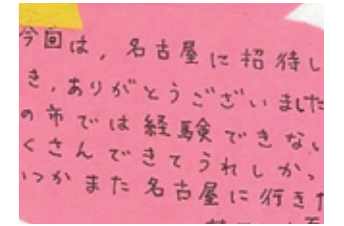 今回は、名古屋に招待し
き、ありがとうございました
の市では経験できない
くさんできてうれしかっ
いつかまた名古屋に行きた